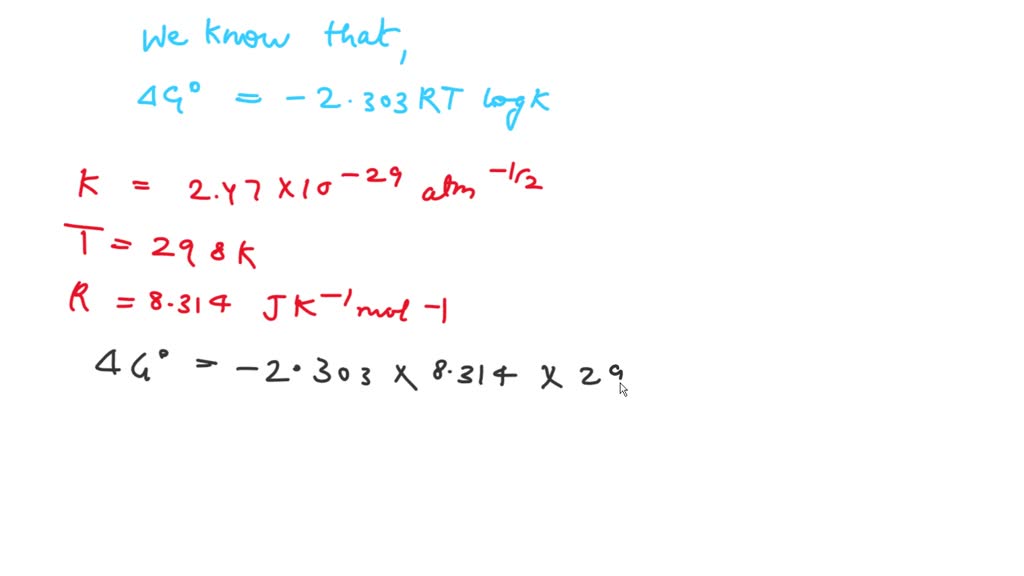 We know that,
ΔG° = -2.303 RT log K
K = 2.47 × 10⁻²⁹ atm⁻¹/²
T = 298 K
R = 8.314 J K⁻¹ mol -1
ΔG° = -2.303 × 8.314 × 29